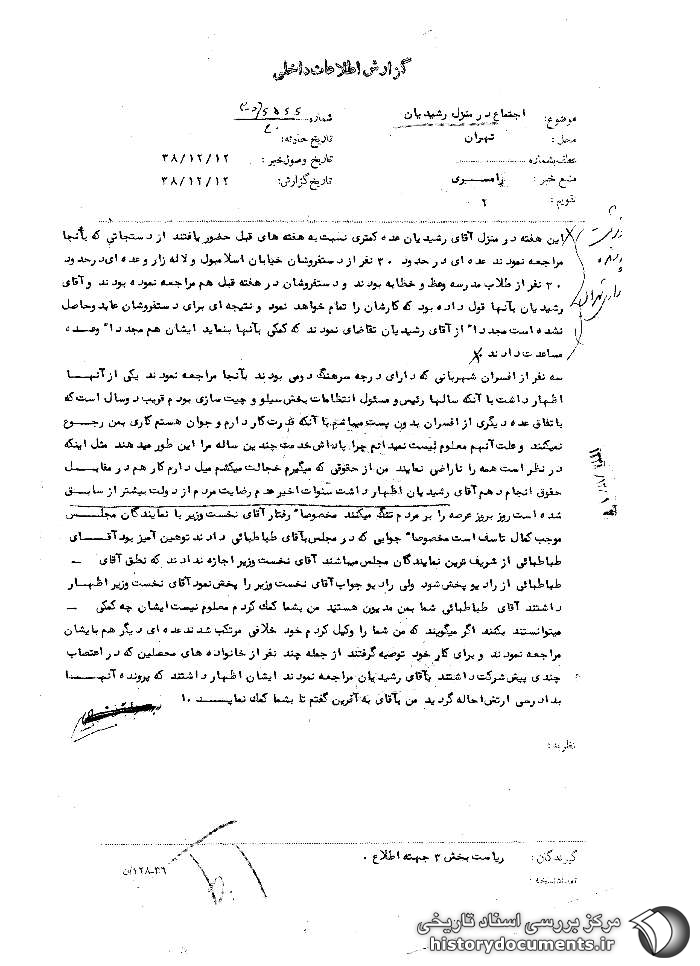 گزارش اطلاعات داخلی
موضوع: اجتماع در منزل رشیدیان
شماره
محل: تهران
تاریخ حادثه:
عطف بشماره
تاریخ وصول خبر: ۳۸/۱۲/۱۲
منبع خبر: رامسری
تاریخ گزارش: ۳۸/۱۲/۱۲
تقویم: ۲
این هفته در منزل آقای رشیدیان عده کمتری نسبت به هفته های قبل حضور یافتند از دستجاتی که بآنجا
مراجعه نمودند عده ای در حدود ۳۰ نفر از دستفروشان خیابان اسلامبول و لاله زار و عده ای در حدود
۲۰ نفر از طلاب مدرسه وعظ و خطابه بودند و دستفروشان در هفته قبل هم مراجعه نموده بودند و آقای
رشیدیان بآنها قول داده بود که کارشان را تمام خواهد نمود و نتیجه ای برای دستفروشان عاید و حاصل
نشده است مجددا" از آقای رشیدیان تقاضای نمودند که کمکی بآنها بنماید ایشان هم مجددا" وعده
مساعدت دادند
سه نفر از افسران شهربانی که دارای درجه سرهنگ دومی بودند بآنجا مراجعه نمودند یکی از آنها
اظهار داشت با آنکه سالها رئیس و مسئول انتظامات بخش سیلو و چیت سازی بودم قریب دو سال است که
باتفاق عده دیگری از افسران بدون پست میباشم با آنکه قدرت کار دارم و جوان هستم کاری بمن رجوع
نمیکنند و علت آنهم معلوم نیست نمیدانم چرا پاداش خدمت چندین ساله مرا این طور میدهند مثل اینکه
در نظر است همه را ناراضی نمایند من از حقوقی که میگیرم خجالت میکشم میل دارم کار هم در مقابل
حقوق انجام دهم آقای رشیدیان اظهار داشت سنوات اخیر عدم رضایت مردم از دولت بیشتر از سابق
شده است روز بروز عرصه را بر مردم تنگ میکنند مخصوصا" رفتار آقای نخست وزیر با نمایندگان مجلس
موجب کمال تاسف است مخصوصا" جوابی که در مجلس بآقای طباطبائی دادند توهین آمیز بود آقای
طباطبائی از شریف ترین نمایندگان مجلس میباشند آقای نخست وزیر اجازه ندادند که نطق آقای _
طباطبائی از رادیو پخش شود ولی رادیو جواب آقای نخست وزیر را پخش نمود آقای نخست وزیر اظهار
داشتند آقای طباطبائی شما بمن مدیون هستید من بشما کمک کردم معلوم نیست ایشان چه کمکی _
میتوانستند بکنند اگر میگویند که من شما را وکیل کردم خود خلافی مرتکب شدند عده ای دیگر هم بایشان
مراجعه نمودند و برای کار خود توصیه گرفتند از جمله چند نفر از خانواده های محصلین که در اعتصاب
چندی پیش شرکت داشتند بآقای رشیدیان مراجعه نمودند ایشان اظهار داشتند که پرونده آنها
بدادرسی ارتش احاله گردید من بآقای به آفرین گفتم تا بشما کمک نماید
نظریه:
گیرندگان: ریاست بخش ۳ جهته اطلاع .
تعداد نسخه:
۱۲۸-۳۶/ن
مرکز بررسی اسناد تاریخی
historydocuments.ir